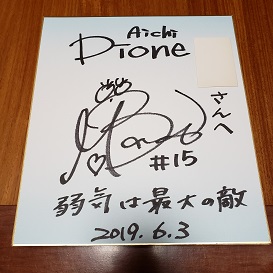 Aichi
Dione
さんへ
#15
弱気は最大の敵
2019.6.3